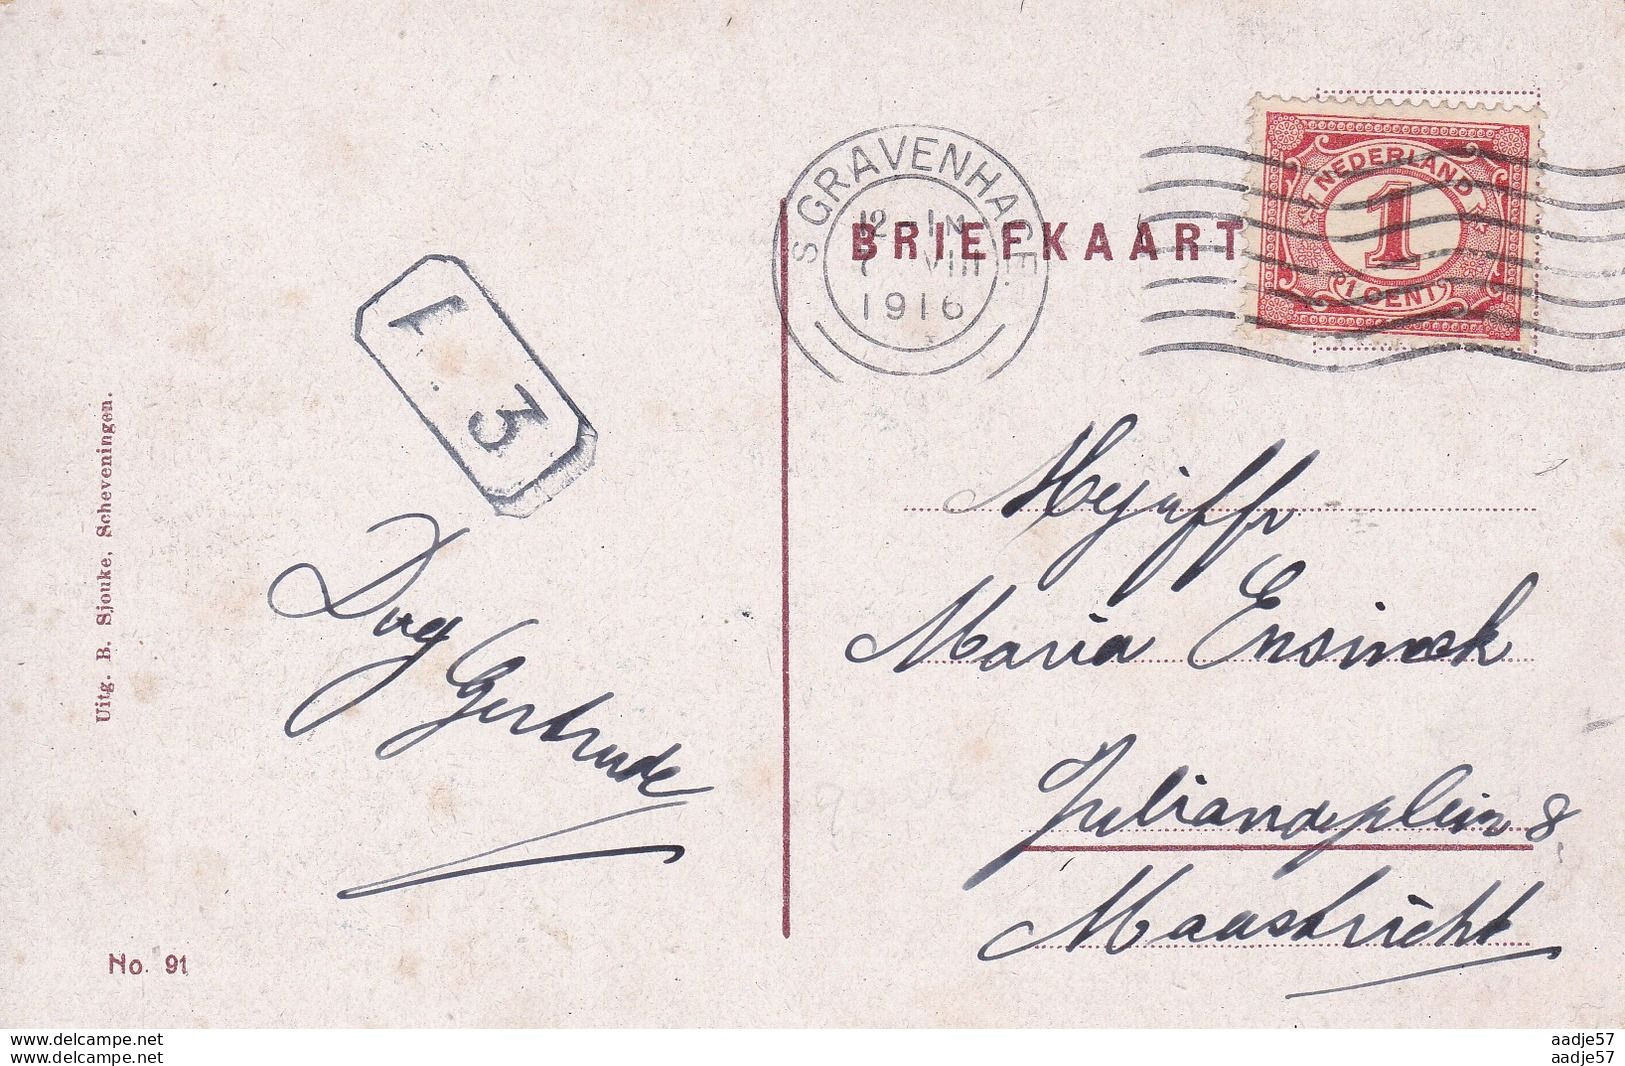 'S GRAVENHAGE.
12 - 1N
7 VIII
1916
BRIEFKAART
NEDERLAND
1
1 CENT
1. 3
Mejuffr
Maria Ensinck
Julianaplein 8
Maastricht
Dag
Gertrude
Uitg. B. Sjouke, Scheveningen.
No. 91
www.delcampe.net
www.delcampe.net
aadje57
aadje57